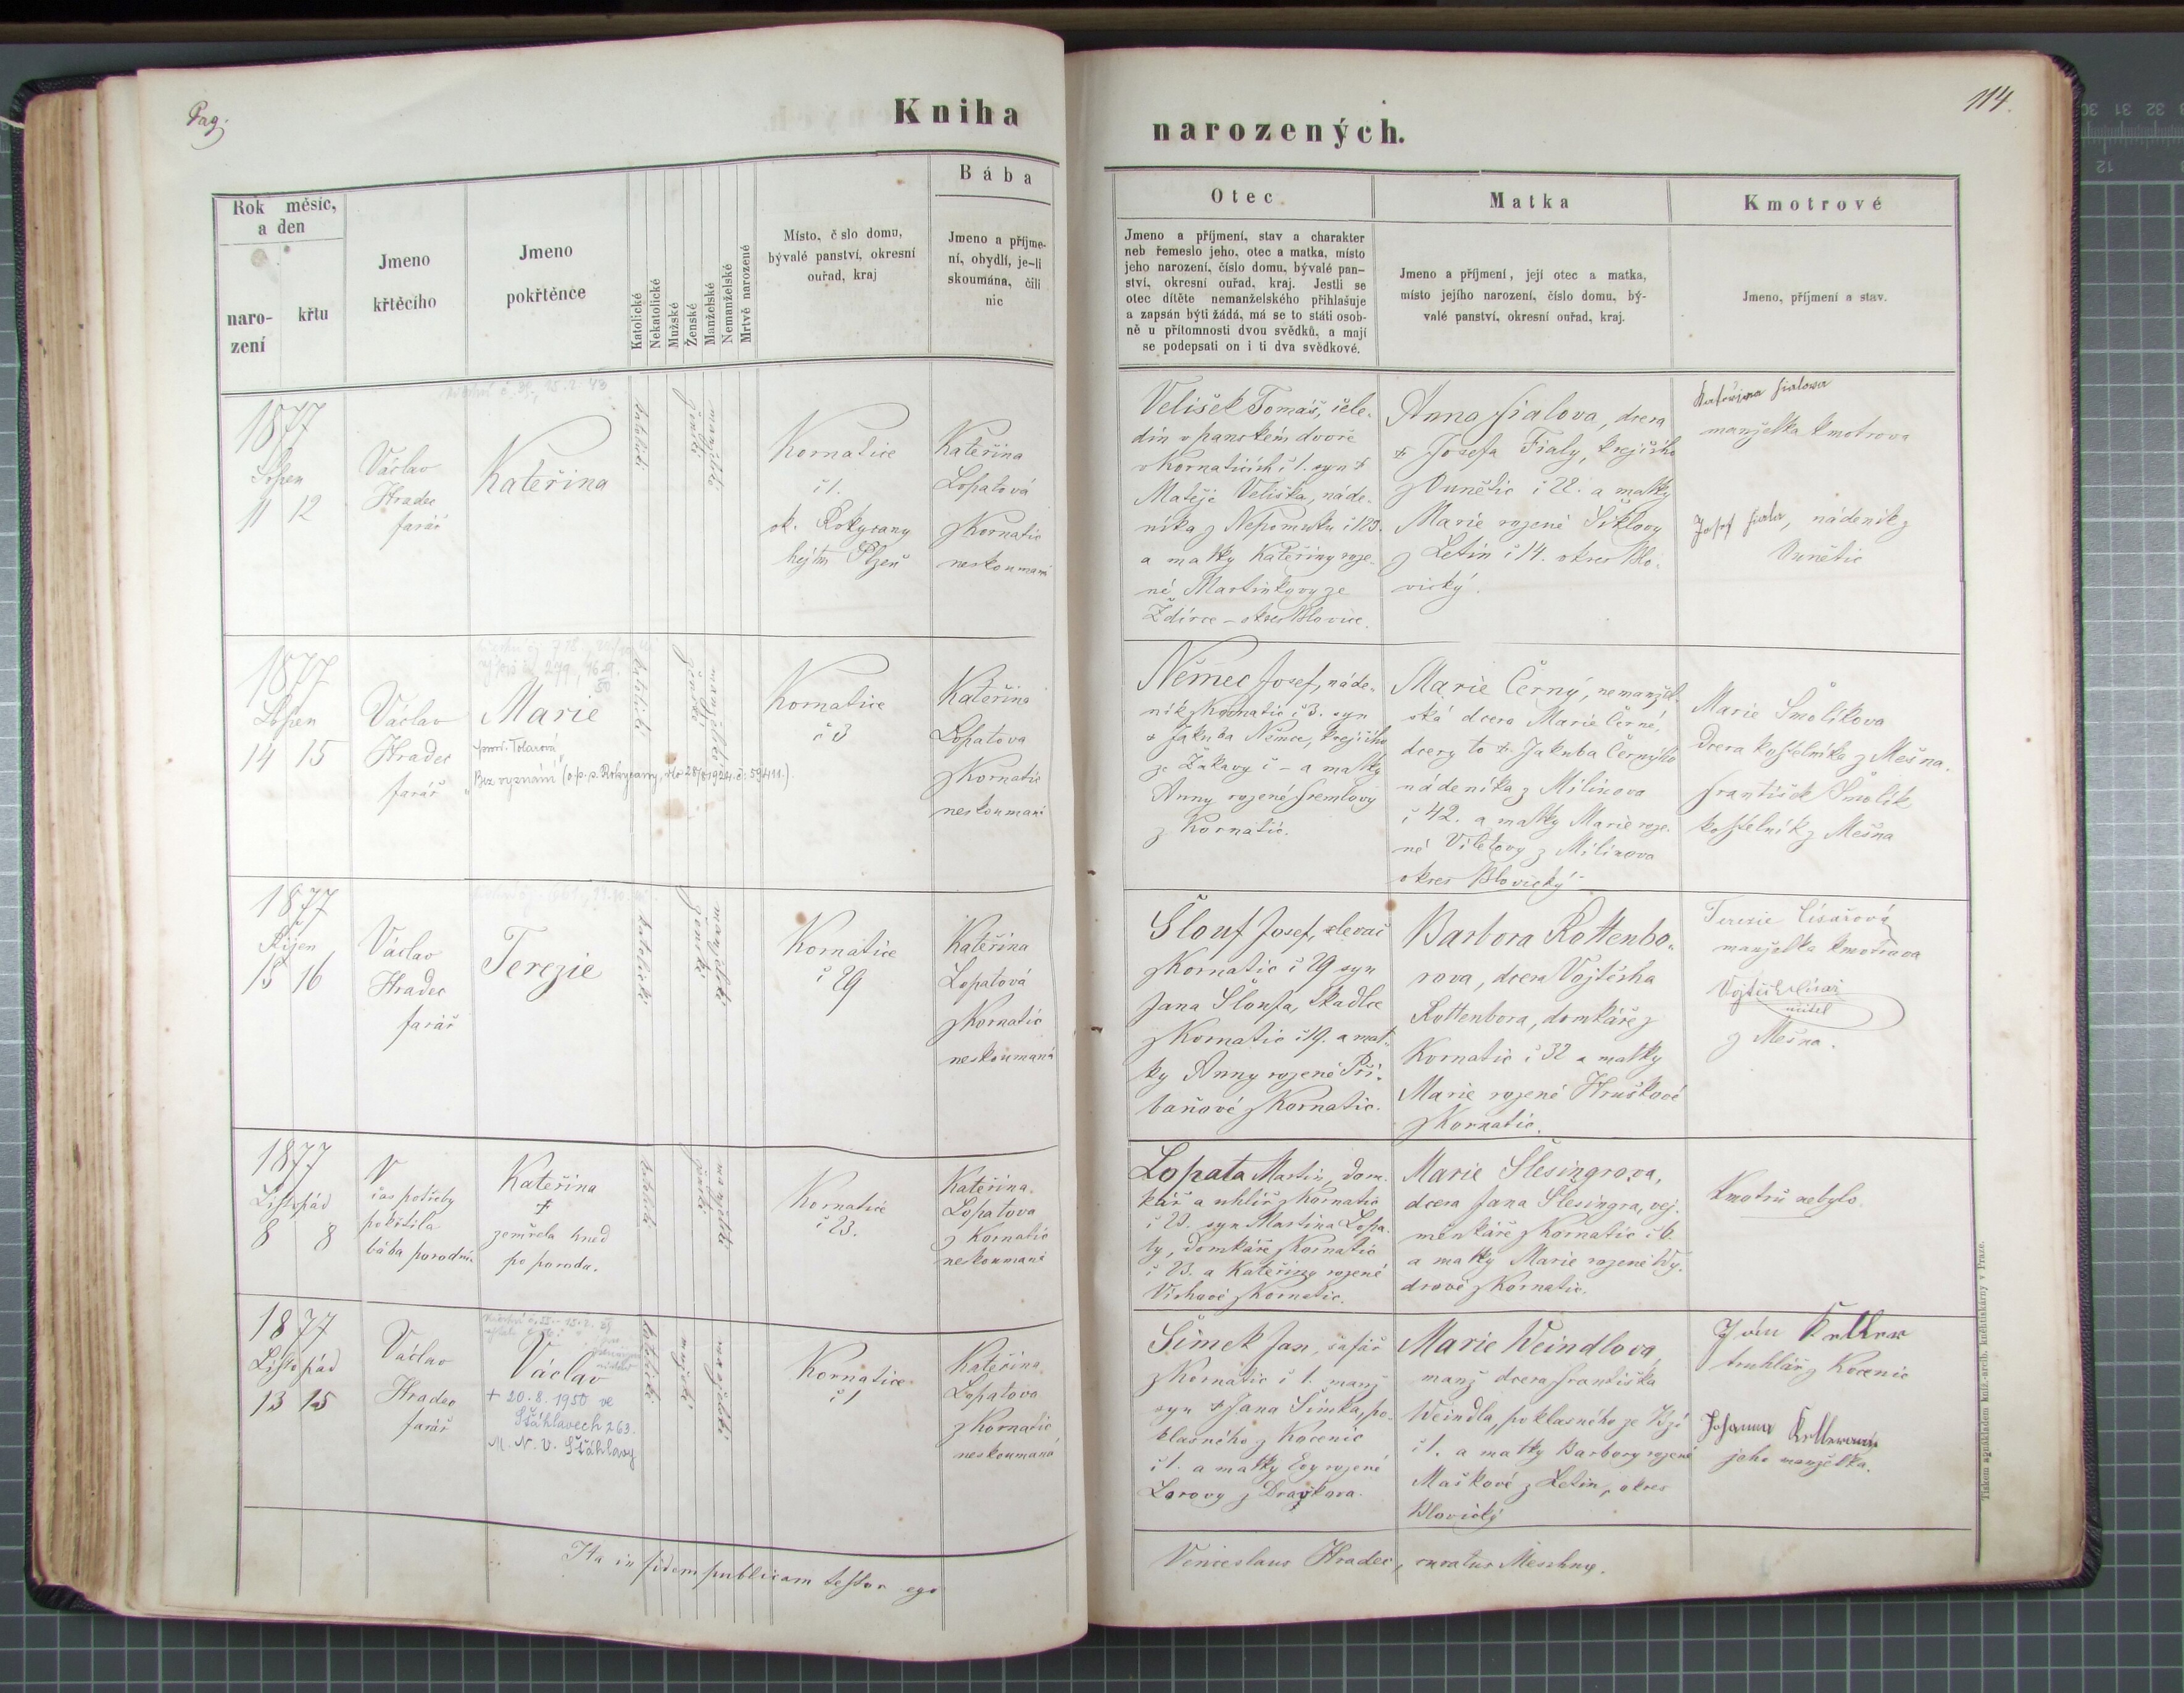 Pag.
Kniha
narozených.
114.
Rok měsíc,
a den
naro-
zení
křtu
Jmeno
křtěcího
Jmeno
pokřtěnce
Katolické
Nekatolické
Mužské
Ženské
Manželské
Nemanželské
Mrtvě narozené
Místo, č slo domu,
bývalé panství, okresní
ouřad, kraj
Bába
Jmeno a příjme-
ní, obydlí, je-li
skoumána, čili
nic
Otec
Jmeno a příjmení, stav a charakter
neb řemeslo jeho, otec a matka, místo
jeho narození, číslo domu, bývalé pan-
ství, okresní ouřad, kraj. Jestli se
otec dítěte nemanželského přihlašuje
a zapsán býti žádá, má se to státi osob-
ně u přítomnosti dvou svědků, a mají
se podepsati on i ti dva svědkové.
Matka
Jmeno a příjmení, její otec a matka,
místo jejího narození, číslo domu, bý-
valé panství, okresní ouřad, kraj.
Kmotrové
Jmeno, příjmení a stav.
1877
Srpen
11 12
Václav
Hradec
farář
Kateřina
katolické
ženské
manželské
Kornatice
č 1.
ok. Rokycany
hejtm Plzeň
Kateřina
Lopatová
z Kornatic
neskoumaní
Velišek Tomáš, čele-
dín v panském dvoře
v Kornaticích č 1. syn †
Matěje Veliška, náde-
níka z Nepomuku č 123.
a matky Kateřiny roze-
né Martinkovy ze
Ždírce - okres Blovice.
Anna Fialova, dcera
† Josefa Fialy, krejčího
z Vunětic č 22. a matky
Marie rozené Šiklovy
z Letin č 14. okres Blo-
vický.
Kateřina Fialowa
manželka kmotrova
Josef Fiala, nádeník z
Vunětic
1877
Srpen
14 15
Václav
Hradec
farář
Marie
prov. Tolarová
"Bez vyznání" (o.p.s. Rokycany, dto 28/8 1924. č: 59411.)
katolické
ženské
manželské
Kornatice
č 3
Kateřina
Lopatova
z Kornatic
neskoumaní
Němec Josef, náde-
ník z Kornatic č 3. syn
† Jakuba Němce, krejčího
ze Žákavy č - a matky
Anny rozené Fremlovy
z Kornatic.
Marie Černý, nemanžel-
ská dcera Marie Černé,
dcery to † Jakuba Černýho
nádeníka z Milínova
č 42. a matky Marie roze-
né Viletovy z Milínova
okres Blovický
Marie Šmolíkova
Dcera kostelníka z Mešna.
František Šmolík
kostelník z Mešna
1877
Říjen
15 16
Václav
Hradec
farář
Terezie
katolické
ženské
manželské
Kornatice
č 29
Kateřina
Lopatová
z Kornatic
neskoumaná
Šlouf Josef, slevač
z Kornatic č 29 syn
Jana Šloufa, tkadlce
z Kornatic č 19. a mat-
ky Anny rozené Při-
baňové z Kornatic.
Barbora Rottenbo-
rova, dcera Vojtěcha
Rottenbora, domkáře z
Kornatic č 32 a matky
Marie rozené Hruškové
z Kornatic.
Terezie Císařová
manželka kmotrova
Vojtěch Císař
učitel
z Mešna.
1877
Listopád
8 8
V
čas potřeby
pokřtila
bába porodní.
Kateřina
†
zemřela hned
po porodu.
katolické
ženské
manželské
Kornatice
č 23.
Kateřina
Lopatova
z Kornatic
neskoumaní
Lopata Martin, dom-
kář a uhlíř z Kornatic
č 23. syn Martina Lopa-
ty, domkáře z Kornatic
č 23. a Kateřiny rozené
Víchové z Kornatic.
Marie Šlesingrova,
dcera Jana Šlesingra, vej-
menkáře z Kornatic č 6.
a matky Marie rozené Vy-
drové z Kornatic.
Kmotrů nebylo.
1877
Listopád
13 15
Václav
Hradec
farář
Václav
+ 20.8.1950 ve
Šťáhlavech 263.
M.N.V. Šťáhlavy
katolické
mužské
manželské
Kornatice
č 1
Kateřina
Lopatova
z Kornatic
neskoumaná
Šimek Jan, šafář
z Kornatic č 1. manž
syn † Jana Šimka, po-
klasného z Kocenic
č 1. a matky Evy rozené
Lorovy z Dravkova.
Marie Weindlova,
manž dcera Františka
Weindla, poklasného ze Vzí
č 1. a matky Barbory rozené
Maškové z Letin, okres
Blovický
truhlář z Kocenic
Johanna
jeho manželka.
Ita in fidem publicam testor ego
Venceslaus Hradec, curatus Meschny.
Tiskem a nákladem kníž.-arcib. knihtiskárny v Praze.